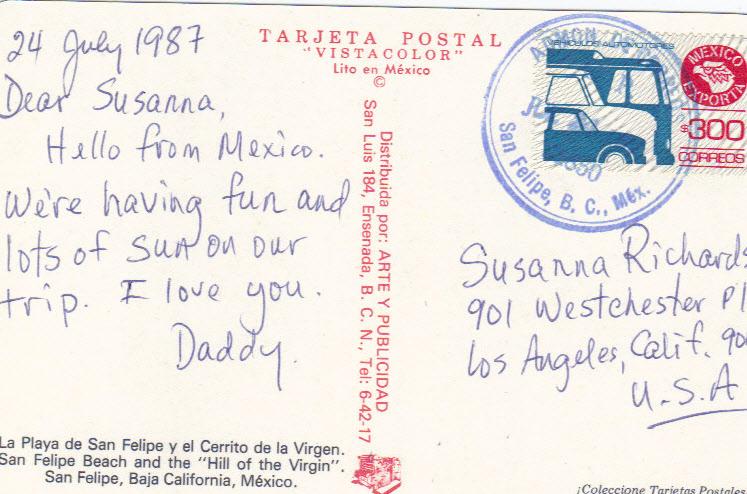 24 July 1987
Dear Susanna,
Hello from Mexico.
We're having fun and
lots of sun on our
trip. I love you.
Daddy.
La Playa de San Felipe y el Cerrito de la Virgen.
San Felipe Beach and the "Hill of the Virgin".
San Felipe, Baja California, México.
TARJETA POSTAL
"VISTACOLOR"
Lito en México
©
Distribuida por: ARTE Y PUBLICIDAD
San Luis 184, Ensenada, B. C. N., Tel: 6-42-17
VEHICULOS AUTOMOTORES
MEXICO
EXPORTA
$300
CORREOS
San Felipe, B. C., Méx.
Susanna Richards
901 Westchester Pl
Los Angeles, Calif. 900
U.S.A
¡Coleccione Tarjetas Postales